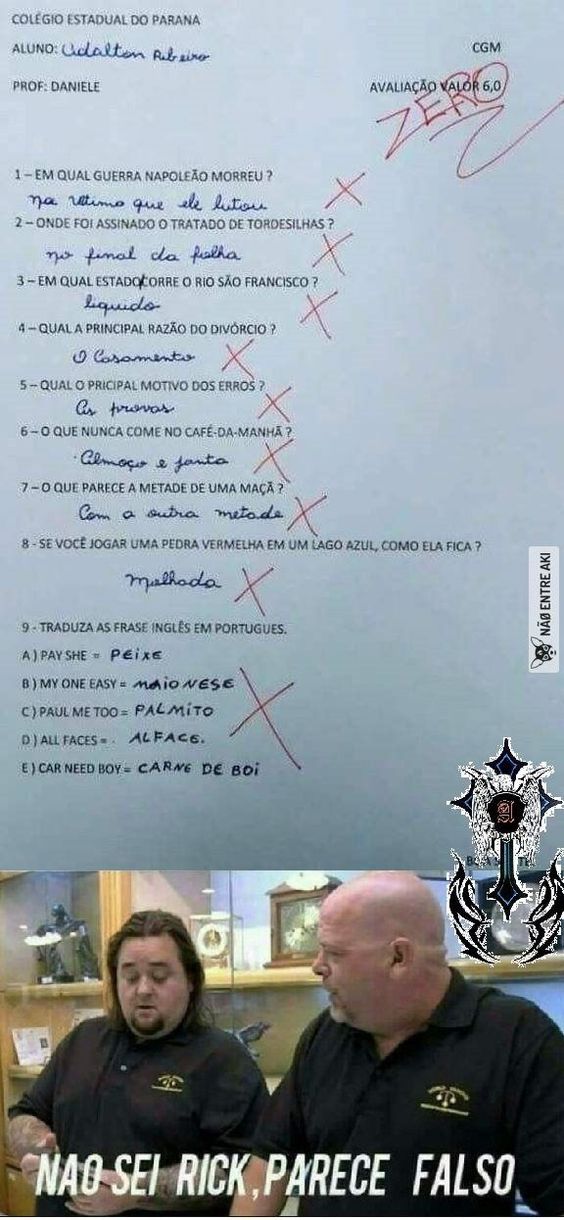 COLÉGIO ESTADUAL DO PARANA
ALUNO: Udalton Ribeiro
CGM
PROF: DANIELE
AVALIAÇÃO VALOR 6,0
ZERO
1 – EM QUAL GUERRA NAPOLEÃO MORREU ?
na ultima que ele lutou
2 – ONDE FOI ASSINADO O TRATADO DE TORDESILHAS ?
no final da folha
3 – EM QUAL ESTADO CORRE O RIO SÃO FRANCISCO ?
liquido
4 – QUAL A PRINCIPAL RAZÃO DO DIVÓRCIO ?
O Casamento
5 – QUAL O PRICIPAL MOTIVO DOS ERROS ?
As provas
6 – O QUE NUNCA COME NO CAFÉ-DA-MANHÃ ?
Almoço e janta
7 – O QUE PARECE A METADE DE UMA MAÇÃ ?
Com a outra metade
8 - SE VOCÊ JOGAR UMA PEDRA VERMELHA EM UM LAGO AZUL, COMO ELA FICA ?
Molhada
NÃØ ENTRE AKI
9 - TRADUZA AS FRASE INGLÊS EM PORTUGUES.
A ) PAY SHE = PEIXE
B ) MY ONE EASY = MAIONESE
C ) PAUL ME TOO = PALMITO
D ) ALL FACES = . ALFACE.
E ) CAR NEED BOY = CARNE DE BOI
NAO SEI RICK, PARECE FALSO